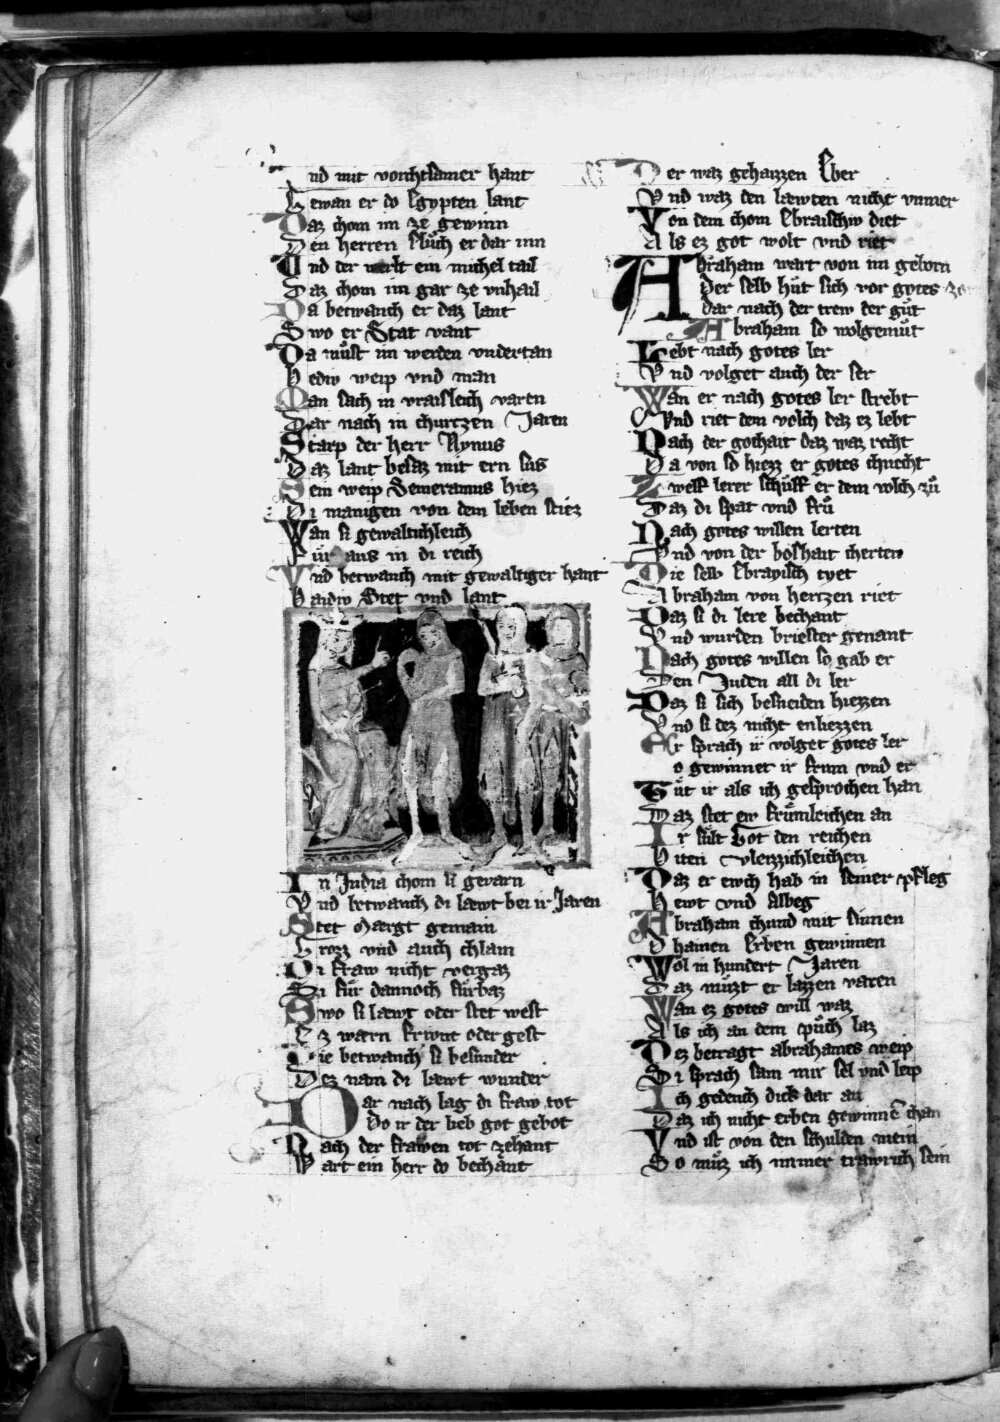 Vnd mit vorchtsamer hant
Gewan er do Egypten lant
Daz chom im ze gewinn
Den herren sluch er dar inn
Vnd der werlt ein michel tail
Daz chom im gar ze vnhail
Da betwanch er daz lant
Swo er Stat vant
Da můst im werden vndertan
Bediw weip vnd man
Man sach in vraisleich varen
Dar nach in churtzen Jaren
Starp der herr Nynus
Daz lant besaz mit ern sus
Sein weip Semeramus hiez
Di manigen von dem leben stiez
Wan si gewaltichleich
Fůr aus in di reich
Vnd betwanch mit gewaltiger hant
Baidiw Stet vnd lant
In India chom si gevarn
Vnd betwanch di læwt bei ir Jaren
Stet Mærgt gemain
Grozz vnd auch chlain
Di fraw nicht vergaz
Si fůr dannoch fůrbaz
Swo si læwt oder stet west
Ez warn friwnt oder gest
Die betwanch si besunder
Dez nam di læwt wunder
Dar nach lag di fraw tot
Do ir der lieb got gebot
Nach der frawen tot zehant
Wart ein herr do bechant
Der waz gehaizzen Eber
Vnd waz den læwten nicht vnmer
Von dem chom Ebraischiw diet
Als ez got wolt vnd riet
Abraham wart von im geborn
Der selb hůt sich vor gotes zorn
Dar nach der trew der gůt
Abraham so wolgemůt
Lebt nach gotes ler
Vnd volget auch der ser
Wan er nach gotes ler strebt
Vnd riet dem volch daz ez lebt
Nach der gothait daz waz recht
Da von so hiezz er gotes chnecht
Zwelf lerer schůff er dem volch zů
Daz di spat vnd frů
Nach gotes willen lerten
Vnd von der boshait cherten
Die selb Ebrayisch tyet
Abraham von hertzen riet
Daz si di lere bechant
Vnd wurden briester genant
Nach gotes willen so gab er
Den Juden all di ler
Daz si sich besneiden hiezzen
Vnd si dez nicht enliezzen
Er sprach ir volget gotes ler
So gewinnet ir frum vnd er
Tůt ir als ich gesprochen han
Daz stet ew frůmleichen an
Ir sült Got den reichen
Biten vleizzichleichen
Daz er ewch hab in seiner pfleg
Hewt vnd Albeg
Abraham chund mit sinnen
Dhainen Erben gewinnen
Wol in hundert Jaren
Daz můzt er lazzen varen
Wan ez gotes will waz
Als ich an dem půch laz
Dez betragt abrahames weip
Si sprach sam mir sel vnd leip
Ich gedench dick dar an
Daz ich nicht erben gewinnē chan
Vnd ist von den schulden mein
So můz ich immer trawrich sein